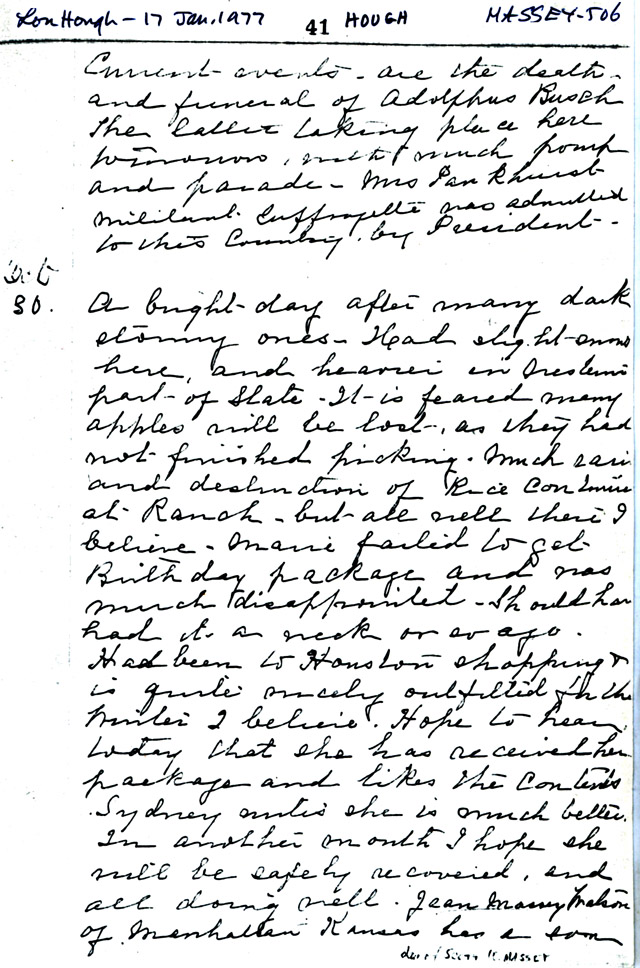 Lon Hough - 17 Jan. 1977 41 HOUGH MASSEY-506
Current events - are the death
and funeral of Adolphus Busch
The latter taking place here
tomorrow, with much pomp
and parade - Mrs Pankhurst
militant Suffragette was admitted
to this Country by President -
Oct
30. A bright day after many dark
stormy ones - Had slight snow
here, and heavier in Western
part of State - It is feared many
apples will be lost, as they had
not finished picking. Much rain
and destruction of Rice Continues
at Ranch - but all well there I
believe - Marie failed to get
Birthday package and was
much disappointed - Should have
had it a week or so ago.
Had been to Houston shopping &
is quite nicely outfitted for the
Winter I believe. Hope to hear
today that she has received her
package and likes the Contents
Sydney writes she is much better.
In another month I hope she
will be safely recovered, and
all doing well. Jean Massey Watson
of Manhattan Kansas has a son